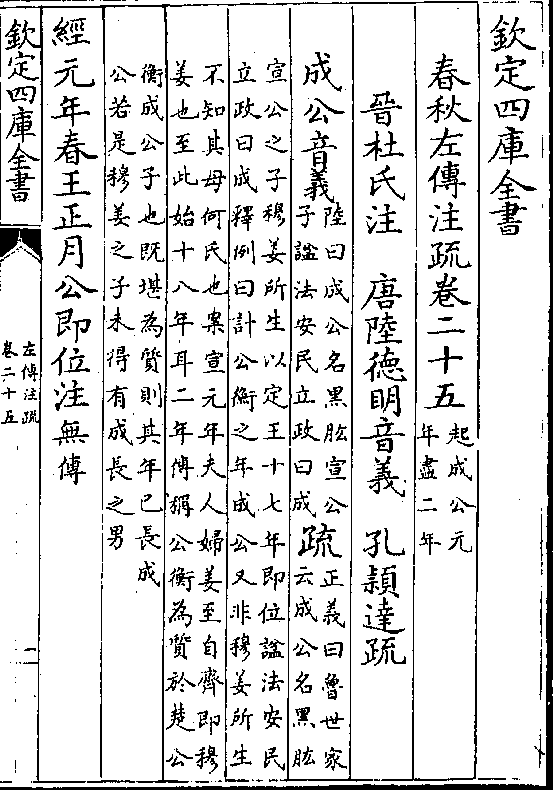 欽定四庫全書
春秋左傳注疏卷二十五
起成公元
年盡二年
晉杜氏注　唐陸德明音義　孔穎達疏
成公音義
陸曰成公名黑肱宣公
子諡法安民立政曰成
疏
正義曰魯世家
云成公名黑肱
宣公之子穆姜所生以定王十七年即位諡法安民
立政曰成釋例曰計公衡之年成公又非穆姜所生
不知其母何氏也案宣元年夫人婦姜至自齊即穆
姜也至此始十八年耳二年傳稱公衡為質於楚公
衡成公子也既堪為質則其年已長成
公若是穆姜之子未得有成長之男
經元年春王正月公即位注無傳
欽定四庫全書
左傳注疏
卷二十五
一